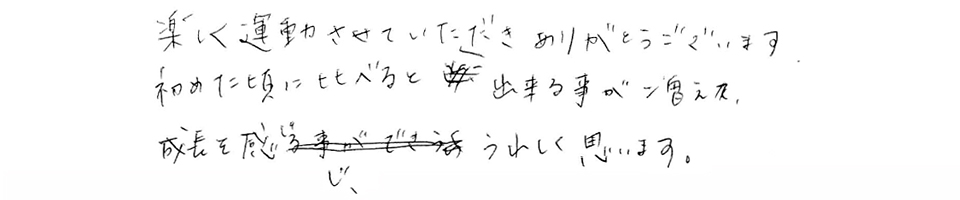 楽しく運動させていただきありがとうございます
初めた頃に比べると出来る事が増えた、
成長を感じ、うれしく思います。